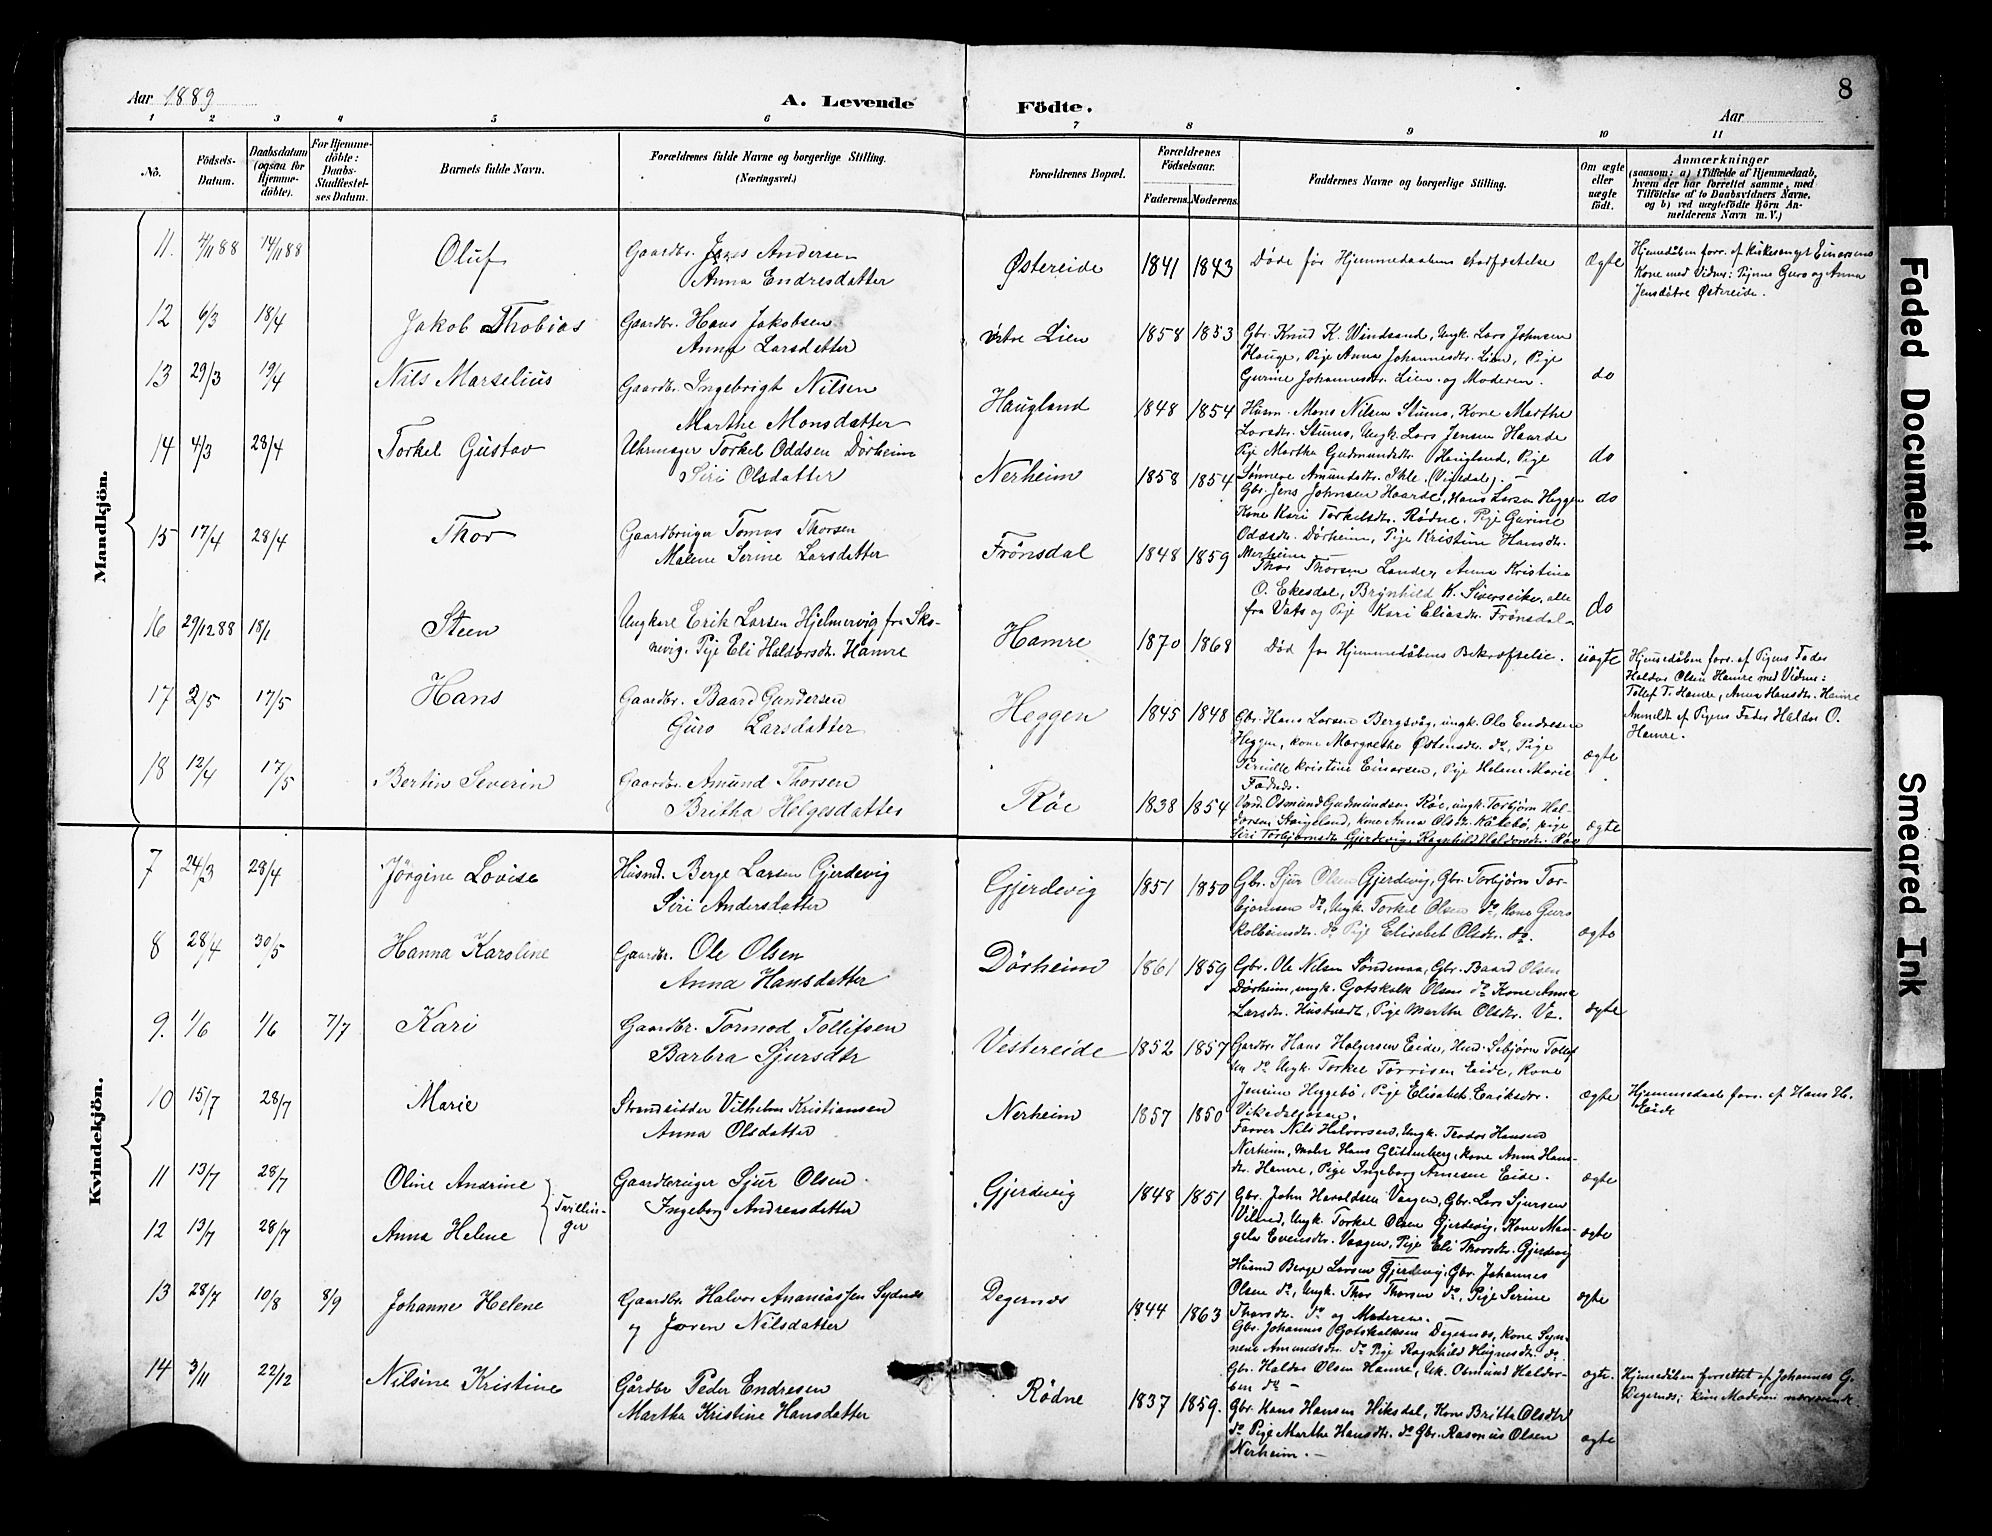 Aar 1889
A. Levende Födte.
Aar
8
1 2 3 4 5 6 7 8 9 10 11
No. Födsels-Datum. Daabsdatum (ogsaa for Hjemme-döbte). For Hjemme-döbte: Daabs-Stadfæstel-ses Datum. Barnets fulde Navn. Forældrenes fulde Navne og borgerlige Stilling. (Næringsvei.) Forældrenes Bopæl. Forældrenes Födselsaar. Faderens. Moderens. Faddernes Navne og borgerlige Stilling. Om ægte eller uægte födt. Anmærkninger (saasom: a) i Tilfælde af Hjemmedaab, hvem der har forrettet samme, med Tilföielse af to Daabsvidners Navne, og b) ved uægtefödte Börn An-melderens Navn m. V.)
Mandkjön.
11. 4/11 88 14/11 88 Oluf Gaardbr. Jens Andersen
Anna Endresdatter
Østereide 1841 1843 Døde før Hjemmedaabens stadfæstelse Ægte
Hjemedåben forr. af kirkesanger Einarsens
Kone med Vidner: Pigerne Guro og Anna
Jensdøtre Østereide.
12 6/3 18/4 Jakob Thobias Gaardbr. Hans Jakobsen
Anna Larsdatter
Lien 1858 1853 Gbr. Knud K. Windsand, Ungk. Lars Johnsen
Hauge, Pige Anna Johannesdtr. Lien, Pige
Gurine Johannesdtr. Lien og Moderen. do
13 29/3 19/4 Nils Marselius Gaardbr. Ingebrigt Nilsen
Marthe Monsdatter
Haugland 1848 1854 Husm. Mons Nilsen Stums, Kone Marthe
Larsdtr. Stums, Ungk. Lars Jensen Haarde
Pige Martha Gudmundsdtr. Haugland, Pige
Sønneve Amundsdtr. (Vikedal). do
14 4/3 28/4 Torkel Gustav Uhrmager Torkel Oddsen Dörheim
Siri Olsdatter
Nerheim 1858 1854
Gbr. Jens Johnsen Haarde, Hans Larsen Heggen
Kone Kari Torkelsdtr. Rødne, Pige Gurine
Odasdtr. Dörheim, Pige Kristine Hansdtr.
Nerheim do
15 17/4 28/4 Thor Gaardbruger Tomas Thorsen
Malene Serine Larsdatter
Frönsdal 1848 1859
Thor Thorsen Lander, Anna Kristine
O. Ekesdal, Brynhild K. alle
fra Vats og Pige Kari Eliasdtr. Frönsdal do
16 29/12 88 18/1 Steen Ungkarl Erik Larsen Hjelmervig fra Skå-
nevig. Pige Eli Haldorsdtr. Hamre
Hamre 1870 1868 Død før Hjemmedåbens Bekræftelse. uægte
Hjemedåben forr. af Pigens Fader
Haldor Olsen Hamre med Vidner:
Tollef T. Hamre, Anna Hansdtr. Hamre
Anmeldt af Pigens Fader Haldor O.
Hamre.
17 2/5 17/5 Hans Gaardbr. Baard Gundersen
Guro Larsdatter
Heggen 1845 1848 Gbr. Hans Larsen Bergsvåg, ungk. Ola Endresen
Heggen, kone Margrethe Østensdtr. do, Pige
Pernille Kristine Einarsen, Pige Helene Marie
ægte
18 12/4 17/5 Bertin Severin Gaardbr. Amund Thorsen
Britha Helgesdatter
Röe 1838 1854 Osmund Gudmundsen Röe, ungk. Torbjörn Hal-
dorsen kone Anna Olsdtr. pige
Siri Torbjörnsdtr. Gjerdevig, Ragnhild Haldorsdtr. Röe ægte
Kvindekjön.
7 24/3 28/4 Jörgine Lovise Husmd. Berge Larsen Gjerdevig
Siri Andersdatter
Gjerdevig 1851 1850 Gbr. Sjur Olsen Gjerdevig, Gbr. Torbjörn Tor-
bjørnsen do, Ungk. Torkel Olsen do, Kone Guro
Kolbeinsdtr. do Pige Elisabet Olsdtr. do. ægte
8 28/4 30/5 Hanna Karoline Gaardbr. Ole Olsen
Anna Hansdatter
Dörheim 1861 1859 Gbr. Ole Nilsen Søndenaa, Gbr. Baard Olsen
Dörheim, ungk. Gotskalk Olsen do Kone Anna
Larsdtr. Hustvedt, Pige Martha Olsdtr. ægte
9. 1/6 1/6 7/7 Kari Gaardbr. Tormod Tollefsen
Barbra Sjursdtr
Vestereide 1852 1857 Gardbr. Hans Holgersen Eide, Husd. Sebjörn Tollef
sen do Ungk. Torkel Tørrisen Eide, Kone
Jensine Heggebø, Pige Elisabet Eriksdtr.
Vikedalsosen. ægte
Hjemmedaab forr. af Hans H.
Eide
10 15/7 28/7 Marie Strandsidder Vilhelm Kristiansen
Anna Olsdatter
Nerheim 1857 1850
Farver Nils Halvorsen, Ungk. Teodor Hansen
Nerheim, maler Hans Glittenberg, Kone Anna Hans-
dtr. Hamre, Pige Ingeborg Arnesen Eide. ægte
11 13/7 28/7 Oline Andrine
12 13/7 28/7 Anna Helene
Tvillin-
ger
Gaardbruger Sjur Olsen
Ingeborg Andreasdatter
Gjerdevig 1848 1851 Gbr. John Haraldsen Vaagen, Gbr. Lars Sjursen
Vilsned, Ungk. Torkel Olsen Gjerdevig, Kone Man-
gela Evensdtr. Vaagen, Pige Eli Thorsdtr. Gjerdevig
ægte
Husmd Berge Larsen Gjerdevig, Gbr. Johannes
Olsen do, Ungk. Thor Thorsen do, Pige Serine
Thorsdtr. do og Moderen. ægte
13 28/7 10/8 8/9 Johanne Helene Gaardbr. Halvor Ananiassen Sydnes
og Joren Nilsdatter
Degernes 1844 1863
Gbr. Johannes Gotskalksen Degernes, kone Syn-
neve Amundsdtr. do Pige Ragnhild do
Gbr. Haldor Olsen Hamre, Uk. Osmund Haldor-
sen do ægte.
Hjemedåben forrettet af Johannes G.
Degernes; kun Moderen nærværende
14 3/11 22/12 Nilsine Kristine Gårdbr Peder Endresen
Martha Kristine Hansdatter
Rödne 1837 1859. Gbr. Hans Hansen Hiksdal, Kone Britta Olsdtr
do Pige Marthe Hansdtr. do Gbr. Rasmus Olsen
Nerheim. ægte
Faded Document
Smeared Ink